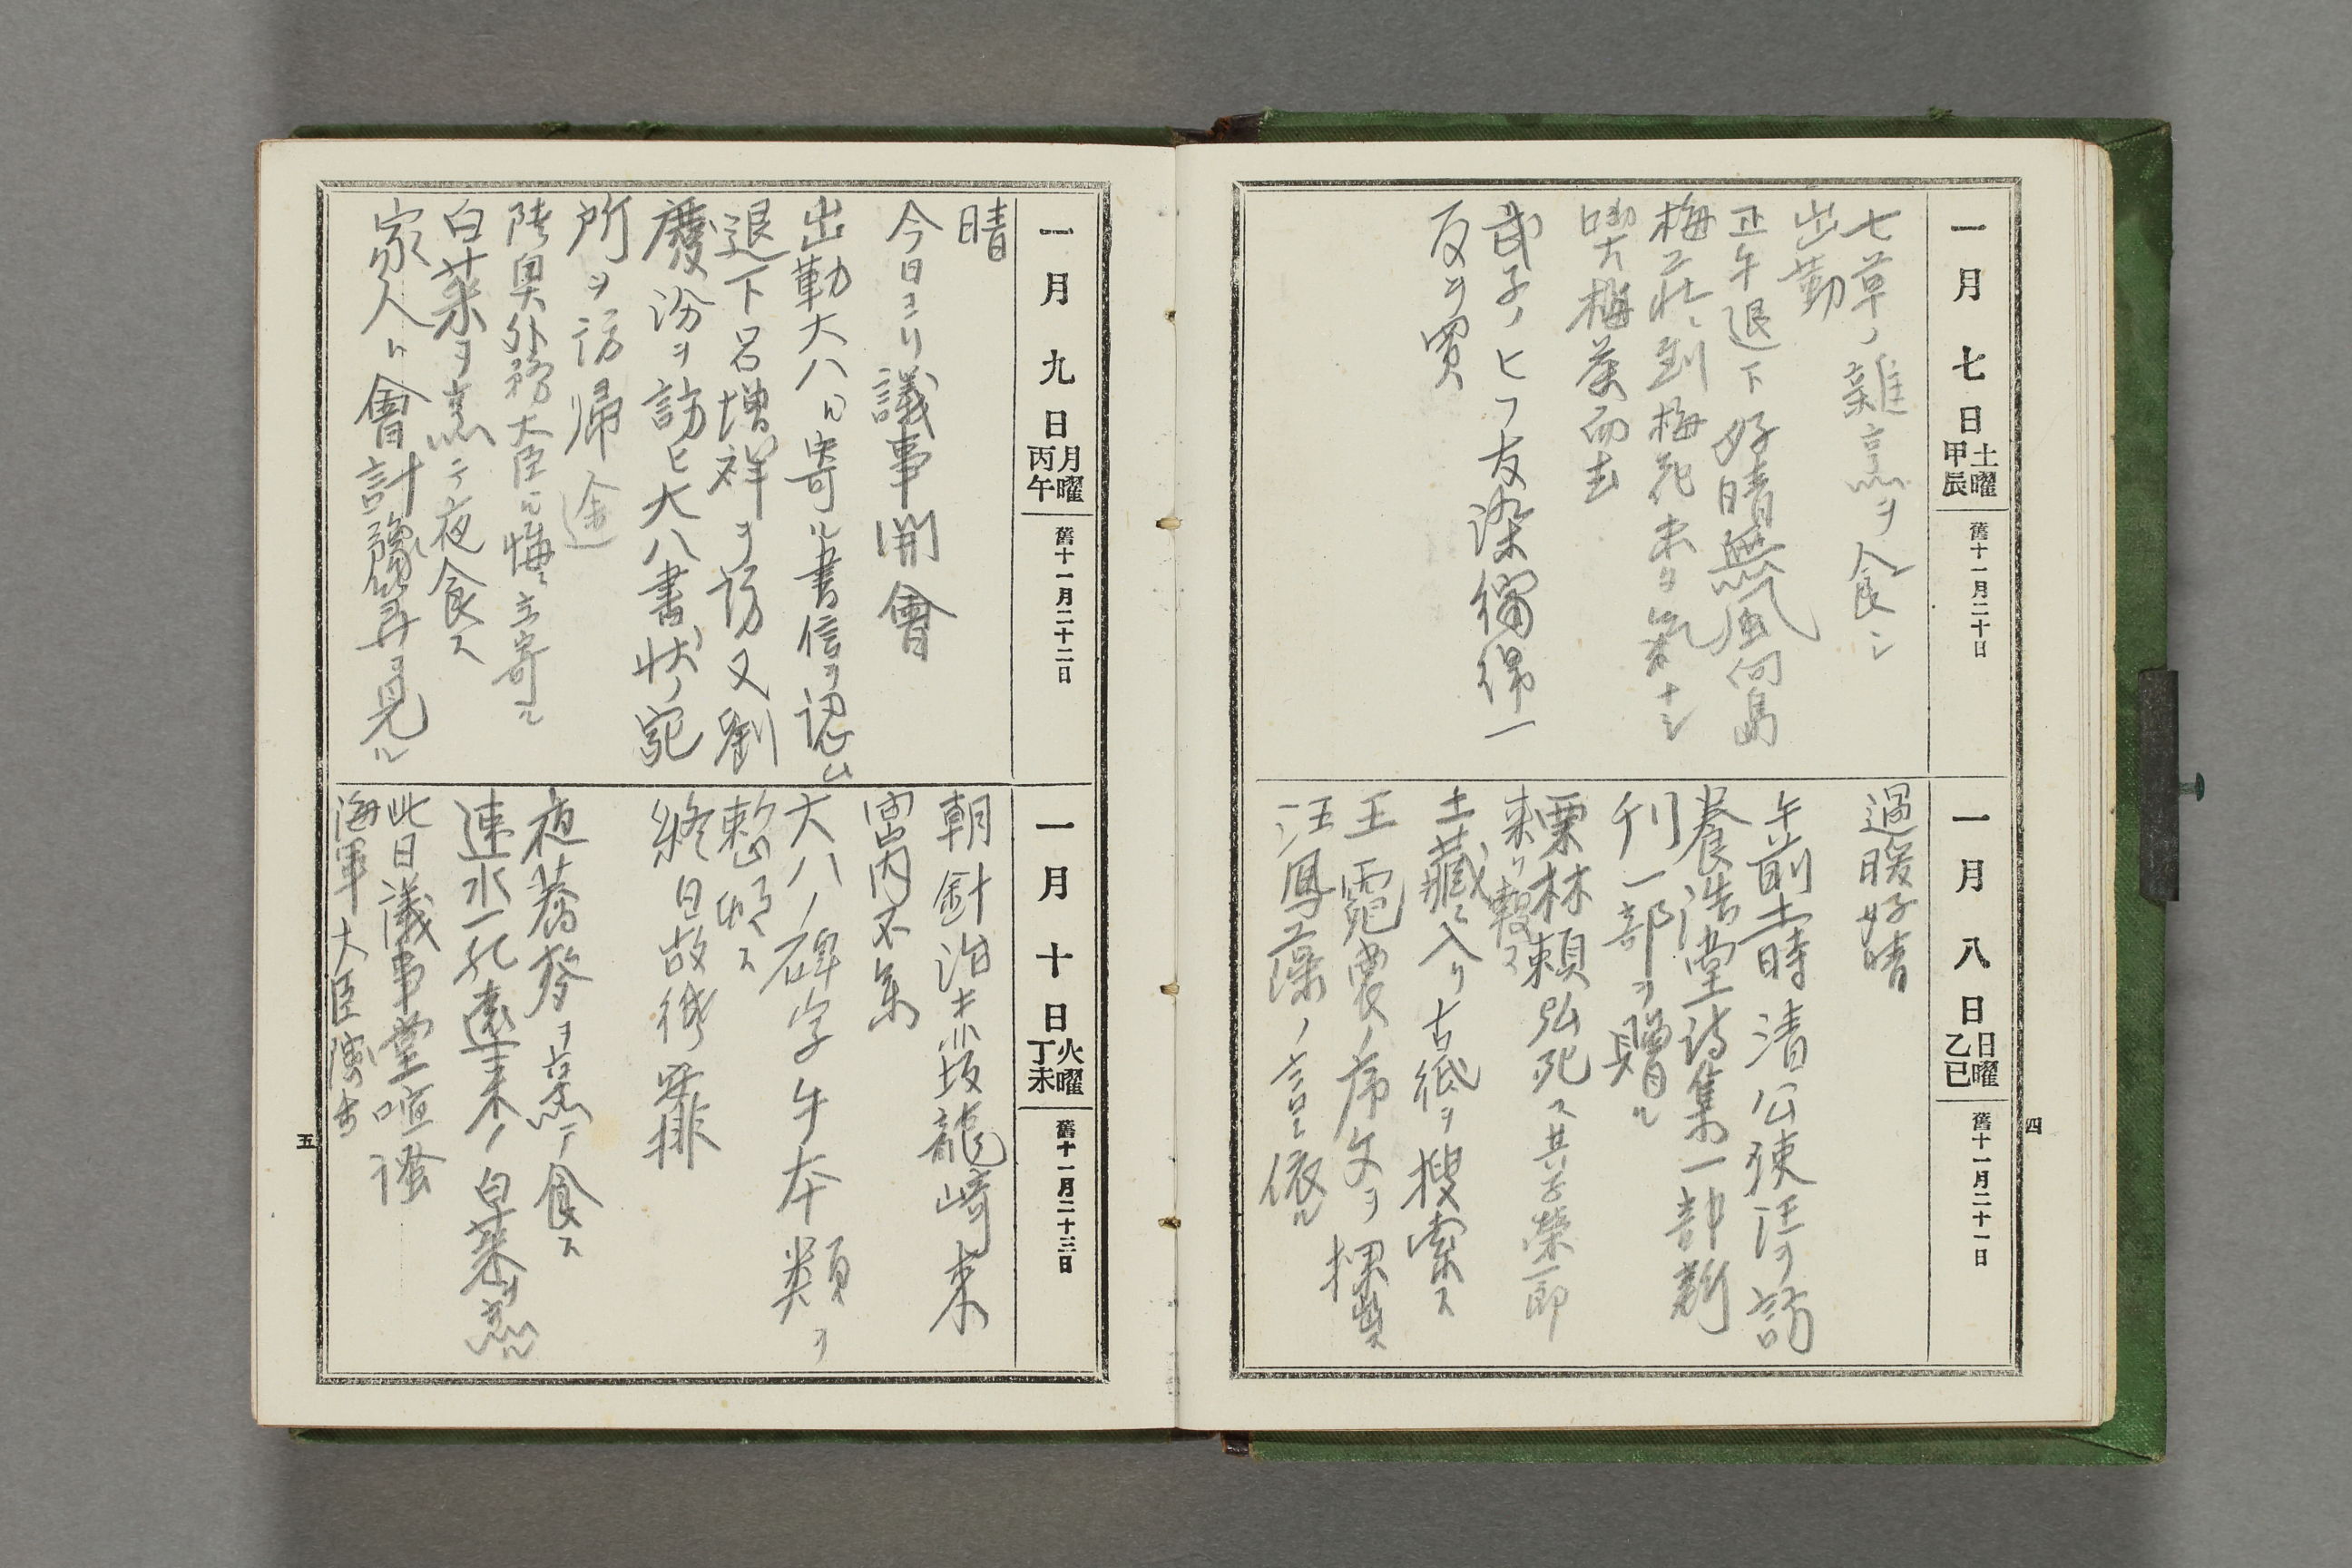 一月七日 土曜 甲辰 舊十一月二十日
七草ノ雜煮ヲ食シ
出勤
正午退下好晴無風向島
梅荘ニ到梅花未タ氣ナシ
喫大梅羹而去
武子ノヒフ友染縮緬一
反ヲ買
一月八日 日曜 乙巳 舊十一月二十一日
過暖好晴
午前十時清公使汪ヲ訪
養浩堂詩集一部新
刊一部ヲ贈ル
栗林頼弘死ス其子榮郎
来リ報ス
土藏ニ入リ古紙ヲ搜索ス
王霓ノ序文ヲ
汪鳳藻ノ言ニ依ル
四
一月九日 月曜 丙午 舊十一月二十二日
晴
今日ヨリ議事開會
出勤大八ニ寄ル書信ヲ認ム
退下呂增祥ヲ訪又劉
慶汾ヲ訪ヒ大八書状ノ宛
所ヲ訪帰途
陸奥外務大臣ニ悔ニ立寄ル
白菜ヲ煮テ夜食ス
家人ト會計豫算ヲ見ル
一月十日 火曜 丁未 舊十一月二十三日
朝針治小坂龍崎来
宮内不参
大八ノ碑字午本類ヲ
整頓ス
終日故紙安排
夜蕎麥ヲ煮テ食ス
速水一孔遠来ノ白菜ヲ煮ル
此日議事堂喧騒
海軍大臣演
五